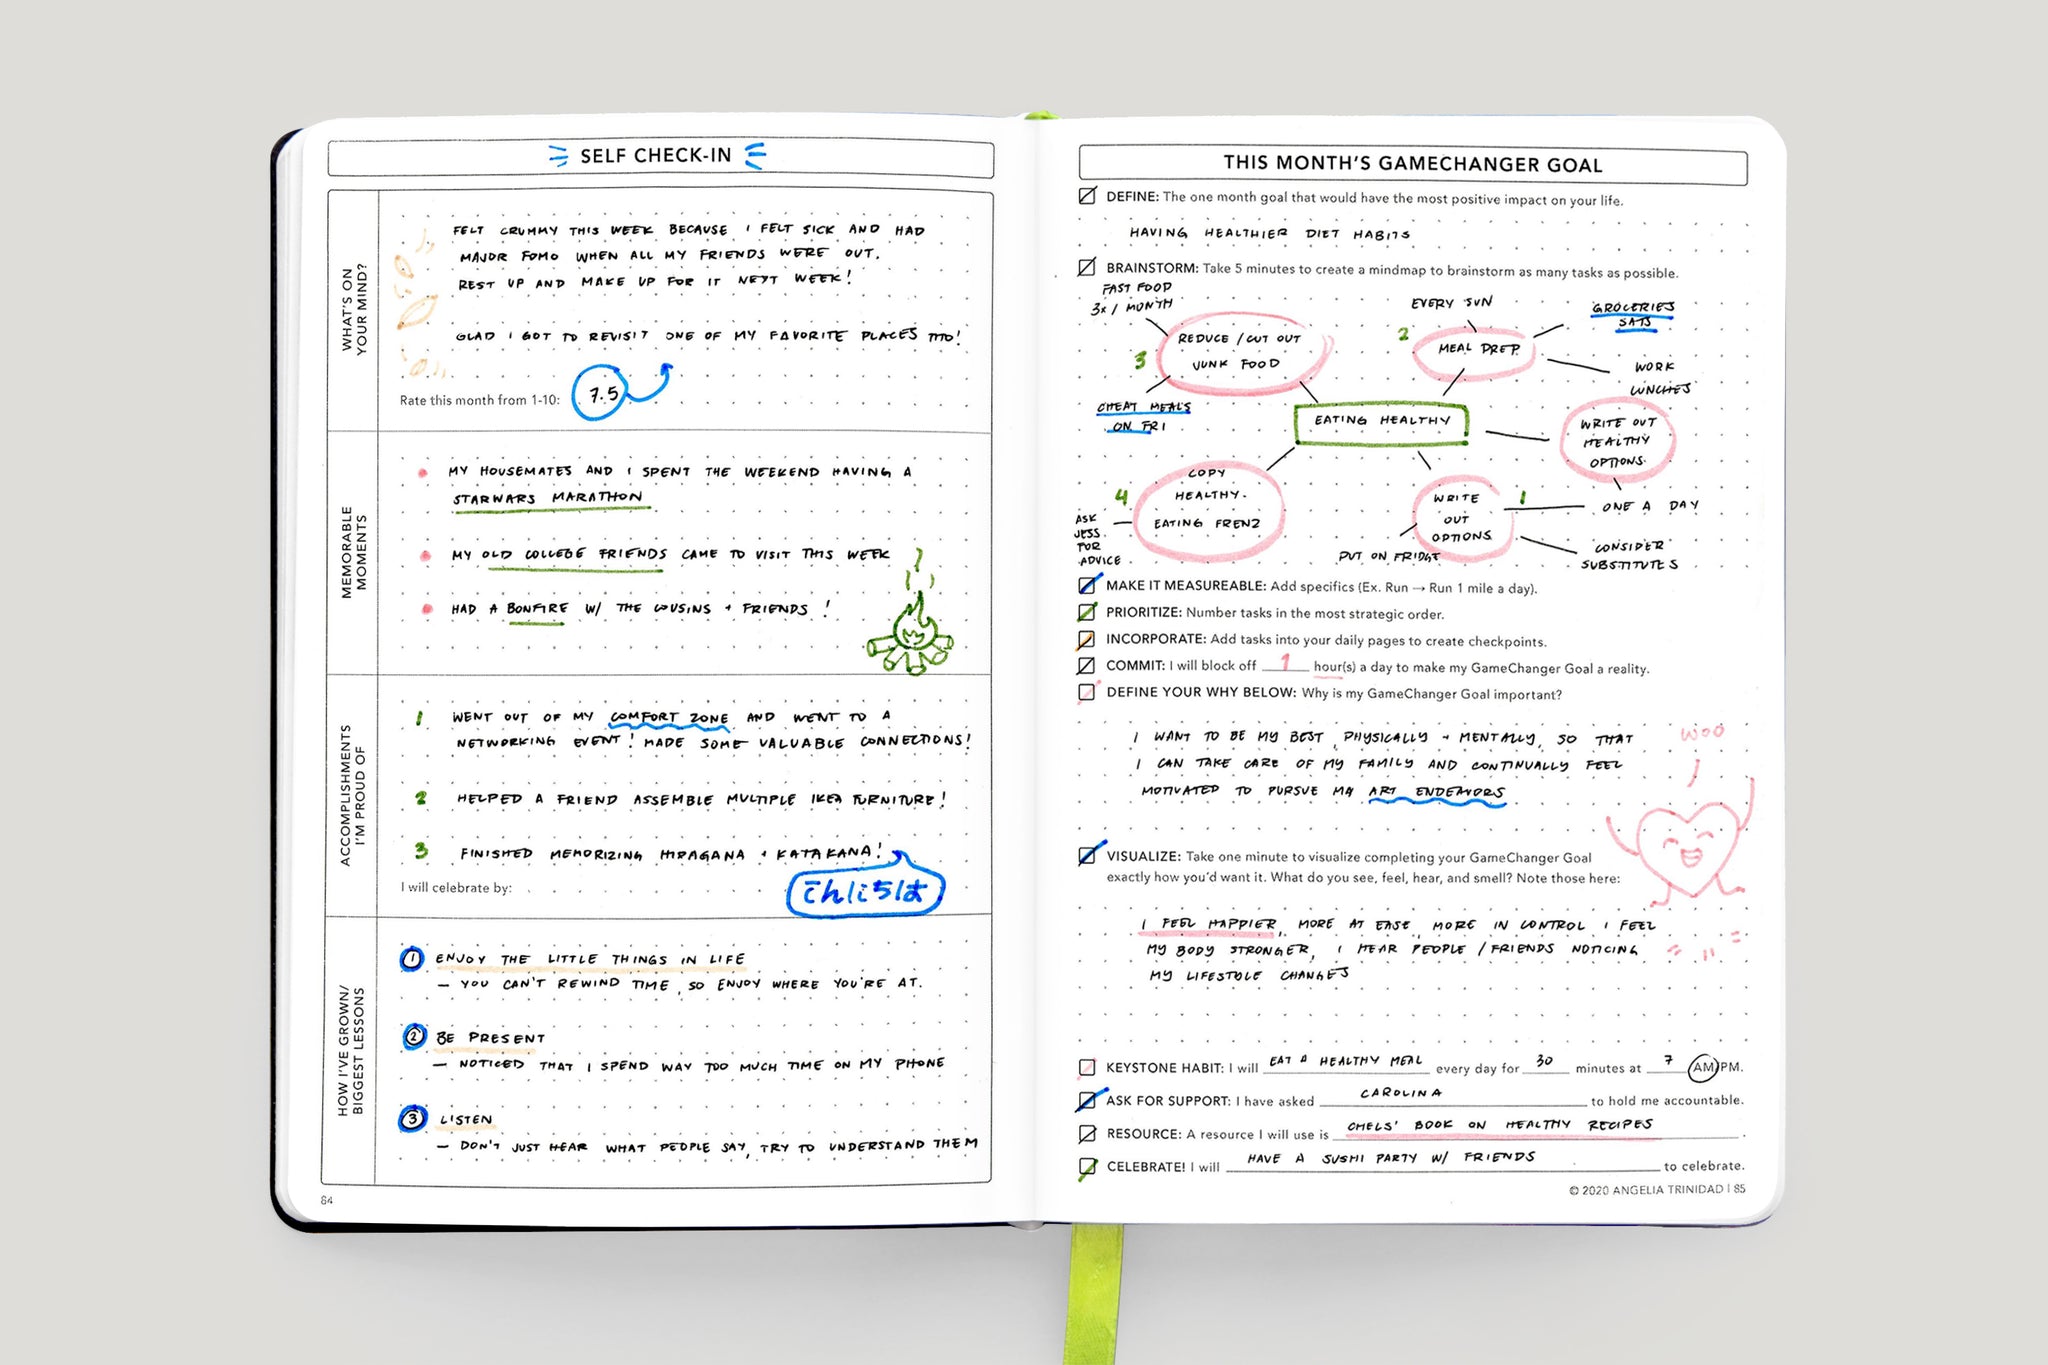 SELF CHECK-IN
WHAT'S ON
YOUR MIND?
FELT CRUMMY THIS WEEK BECAUSE I FELT SICK AND HAD
MAJOR FOMO WHEN ALL MY FRIENDS WERE OUT.
REST UP AND MAKE UP FOR IT NEXT WEEK!
GLAD I GOT TO REVISIT ONE OF MY FAVORITE PLACES TOO!
Rate this month from 1-10: 7.5
MEMORABLE
MOMENTS
MY HOUSEMATES AND I SPENT THE WEEKEND HAVING A
STARWARS MARATHON
MY OLD COLLEGE FRIENDS CAME TO VISIT THIS WEEK
HAD A BONFIRE W/ THE COUSINS + FRIENDS !
ACCOMPLISHMENTS
I'M PROUD OF
1 WENT OUT OF MY COMFORT ZONE AND WENT TO A
NETWORKING EVENT! MADE SOME VALUABLE CONNECTIONS!
2 HELPED A FRIEND ASSEMBLE MULTIPLE IKEA FURNITURE!
3 FINISHED MEMORIZING HIRAGANA + KATAKANA!
I will celebrate by:
こんにちは
HOW I'VE GROWN/
BIGGEST LESSONS
1 ENJOY THE LITTLE THINGS IN LIFE
– YOU CAN'T REWIND TIME, SO ENJOY WHERE YOU'RE AT.
2 BE PRESENT
– NOTICED THAT I SPEND WAY TOO MUCH TIME ON MY PHONE
3 LISTEN
– DON'T JUST HEAR WHAT PEOPLE SAY, TRY TO UNDERSTAND THEM
84
THIS MONTH'S GAMECHANGER GOAL
DEFINE: The one month goal that would have the most positive impact on your life.
HAVING HEALTHIER DIET HABITS
BRAINSTORM: Take 5 minutes to create a mindmap to brainstorm as many tasks as possible.
FAST FOOD
3x / MONTH
3
REDUCE / CUT OUT
JUNK FOOD
CHEAT MEALS
ON FRI
EVERY SUN
2
MEAL PREP
GROCERIES
SATS
WORK
LUNCHES
EATING HEALTHY
WRITE OUT
HEALTHY
OPTIONS
4
COPY
HEALTHY
EATING FRENZ
ASK
JESS
FOR
ADVICE
WRITE
OUT
OPTIONS
1
PUT ON FRIDGE
ONE A DAY
CONSIDER
SUBSTITUTES
MAKE IT MEASUREABLE: Add specifics (Ex. Run → Run 1 mile a day).
PRIORITIZE: Number tasks in the most strategic order.
INCORPORATE: Add tasks into your daily pages to create checkpoints.
COMMIT: I will block off 1 hour(s) a day to make my GameChanger Goal a reality.
DEFINE YOUR WHY BELOW: Why is my GameChanger Goal important?
I WANT TO BE MY BEST, PHYSICALLY + MENTALLY, SO THAT
I CAN TAKE CARE OF MY FAMILY AND CONTINUALLY FEEL
MOTIVATED TO PURSUE MY ART ENDEAVORS
WOO
VISUALIZE: Take one minute to visualize completing your GameChanger Goal
exactly how you'd want it. What do you see, feel, hear, and smell? Note those here:
I FEEL HAPPIER, MORE AT EASE, MORE IN CONTROL. I FEEL
MY BODY STRONGER, I HEAR PEOPLE / FRIENDS NOTICING
MY LIFESTYLE CHANGES
KEYSTONE HABIT: I will EAT A HEALTHY MEAL every day for 30 minutes at 7 AM/PM.
ASK FOR SUPPORT: I have asked CAROLINA to hold me accountable.
RESOURCE: A resource I will use is CHELS' BOOK ON HEALTHY RECIPES.
CELEBRATE! I will HAVE A SUSHI PARTY W/ FRIENDS to celebrate.
© 2020 ANGELIA TRINIDAD | 85